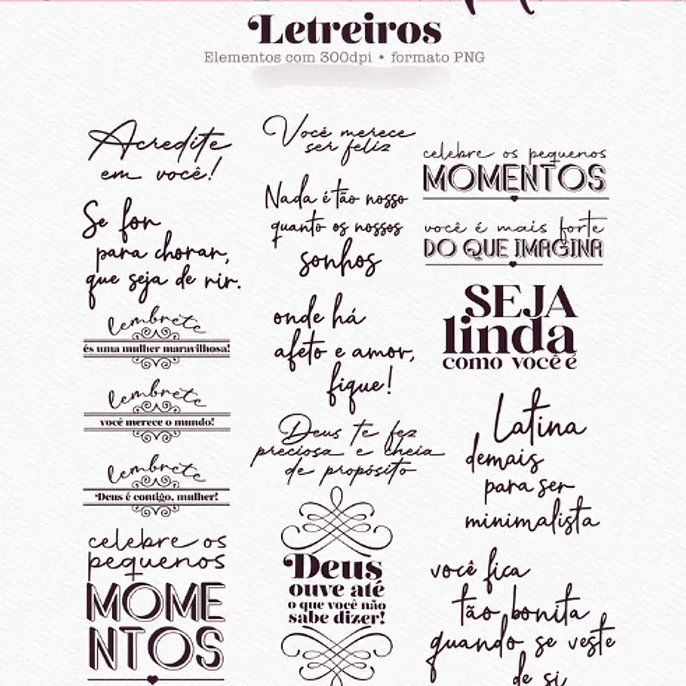 Letreiros
Elementos com 300dpi • formato PNG
Acredite
em você!
Se for
para chorar,
que seja de rir.
lembrete
és uma mulher maravilhosa!
lembrete
você merece o mundo!
lembrete
Deus é contigo, mulher!
celebre os
pequenos
MOME
NTOS
Você merece
ser feliz
Nada é tão nosso
quanto os nossos
sonhos
onde há
afeto e amor,
fique!
Deus te fez
preciosa e cheia
de propósito
Deus
ouve até
o que você não
sabe dizer!
celebre os pequenos
MOMENTOS
você é mais forte
DO QUE IMAGINA
SEJA
linda
como você é
Latina
demais
para ser
minimalista
você fica
tão bonita
quando se veste
de si